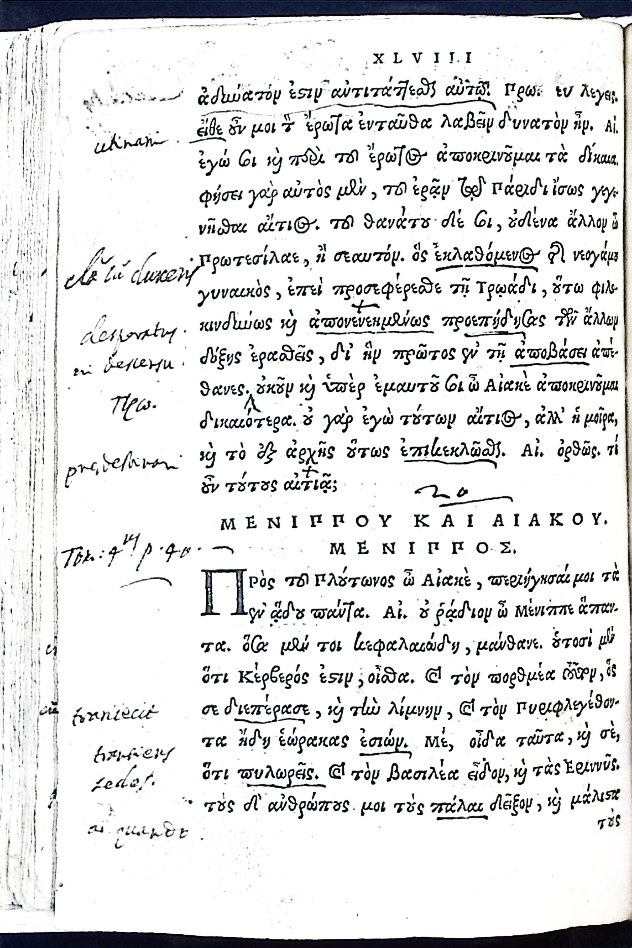 XLVIII
ἀδύνατόν ἐστιν ἀντιτάττεσθαι αὐτῷ. Πρω. εὖ λέγεις.
utinam εἴθε οὖν μοι τὸν ἔρωτα ἐνταῦθα λαβεῖν δυνατὸν ἦν. Αἰ.
ἐγώ σοι καὶ περὶ τοῦ ἔρωτος ἀποκρινοῦμαι τὰ δίκαια.
φήσει γὰρ αὐτὸς μὲν, τοῦ ἐρᾷν τῷ Πάριδι ἴσως γεγε-
νῆσθαι αἴτιος. τοῦ θανάτου δέ σοι, οὐδένα ἄλλον ὦ
Πρωτεσίλαε, ἢ σεαυτόν. ὃς ἐκλαθόμενος τῆς νεογάμου
γυναικὸς, ἐπεὶ προσεφέρεσθε τῇ Τρῳάδι, οὕτω φιλο-
κινδύνως καὶ ἀπονενοημένως προεπήδησας τῶν ἄλλων
δόξης ἐρασθεὶς, δι' ἣν πρῶτος ἐν τῇ ἀποβάσει ἀπέ-
Πρω. θανες. οὐκοῦν καὶ ὑπὲρ ἐμαυτοῦ σοι ὦ Αἰακὲ ἀποκρινοῦμαι
δικαιότερα. οὐ γὰρ ἐγὼ τούτων αἴτιος, ἀλλ' ἡ μοῖρα,
καὶ τὸ ἐξ ἀρχῆς οὕτως ἐπικεκλῶσθαι. Αἰ. ὀρθῶς. τί
οὖν τούτους αἰτιᾷ;
20
ΜΕΝΙΠΠΟΥ ΚΑΙ ΑΙΑΚΟΥ.
ΜΕΝΙΠΠΟΣ.
Πρὸς τοῦ Πλούτωνος ὦ Αἰακὲ, περιήγησαί μοι τὰ
ἐν ᾅδου πάντα. Αἰ. οὐ ῥᾴδιον ὦ Μένιππε ἅπαν-
τα. ὅσα μέν τοι κεφαλαιώδη, μάνθανε. οὑτοσὶ μὲν
ὅτι Κέρβερός ἐστιν, οἶσθα. καὶ τὸν πορθμέα τοῦτον, ὅς
traniecit σε διεπέρασε, καὶ τὴν λίμνην, καὶ τὸν Πυριφλεγέθον-
τα ἤδη ἑώρακας ἐσιών. Μέ, οἶδα ταῦτα, καὶ σὲ,
ὅτι πυλωρεῖς. καὶ τὸν βασιλέα εἶδον, καὶ τὰς Ἐριννῦς.
τοὺς δ' ἀνθρώπους μοι τοὺς πάλαι δεῖξον, καὶ μάλιστα
τοὺς